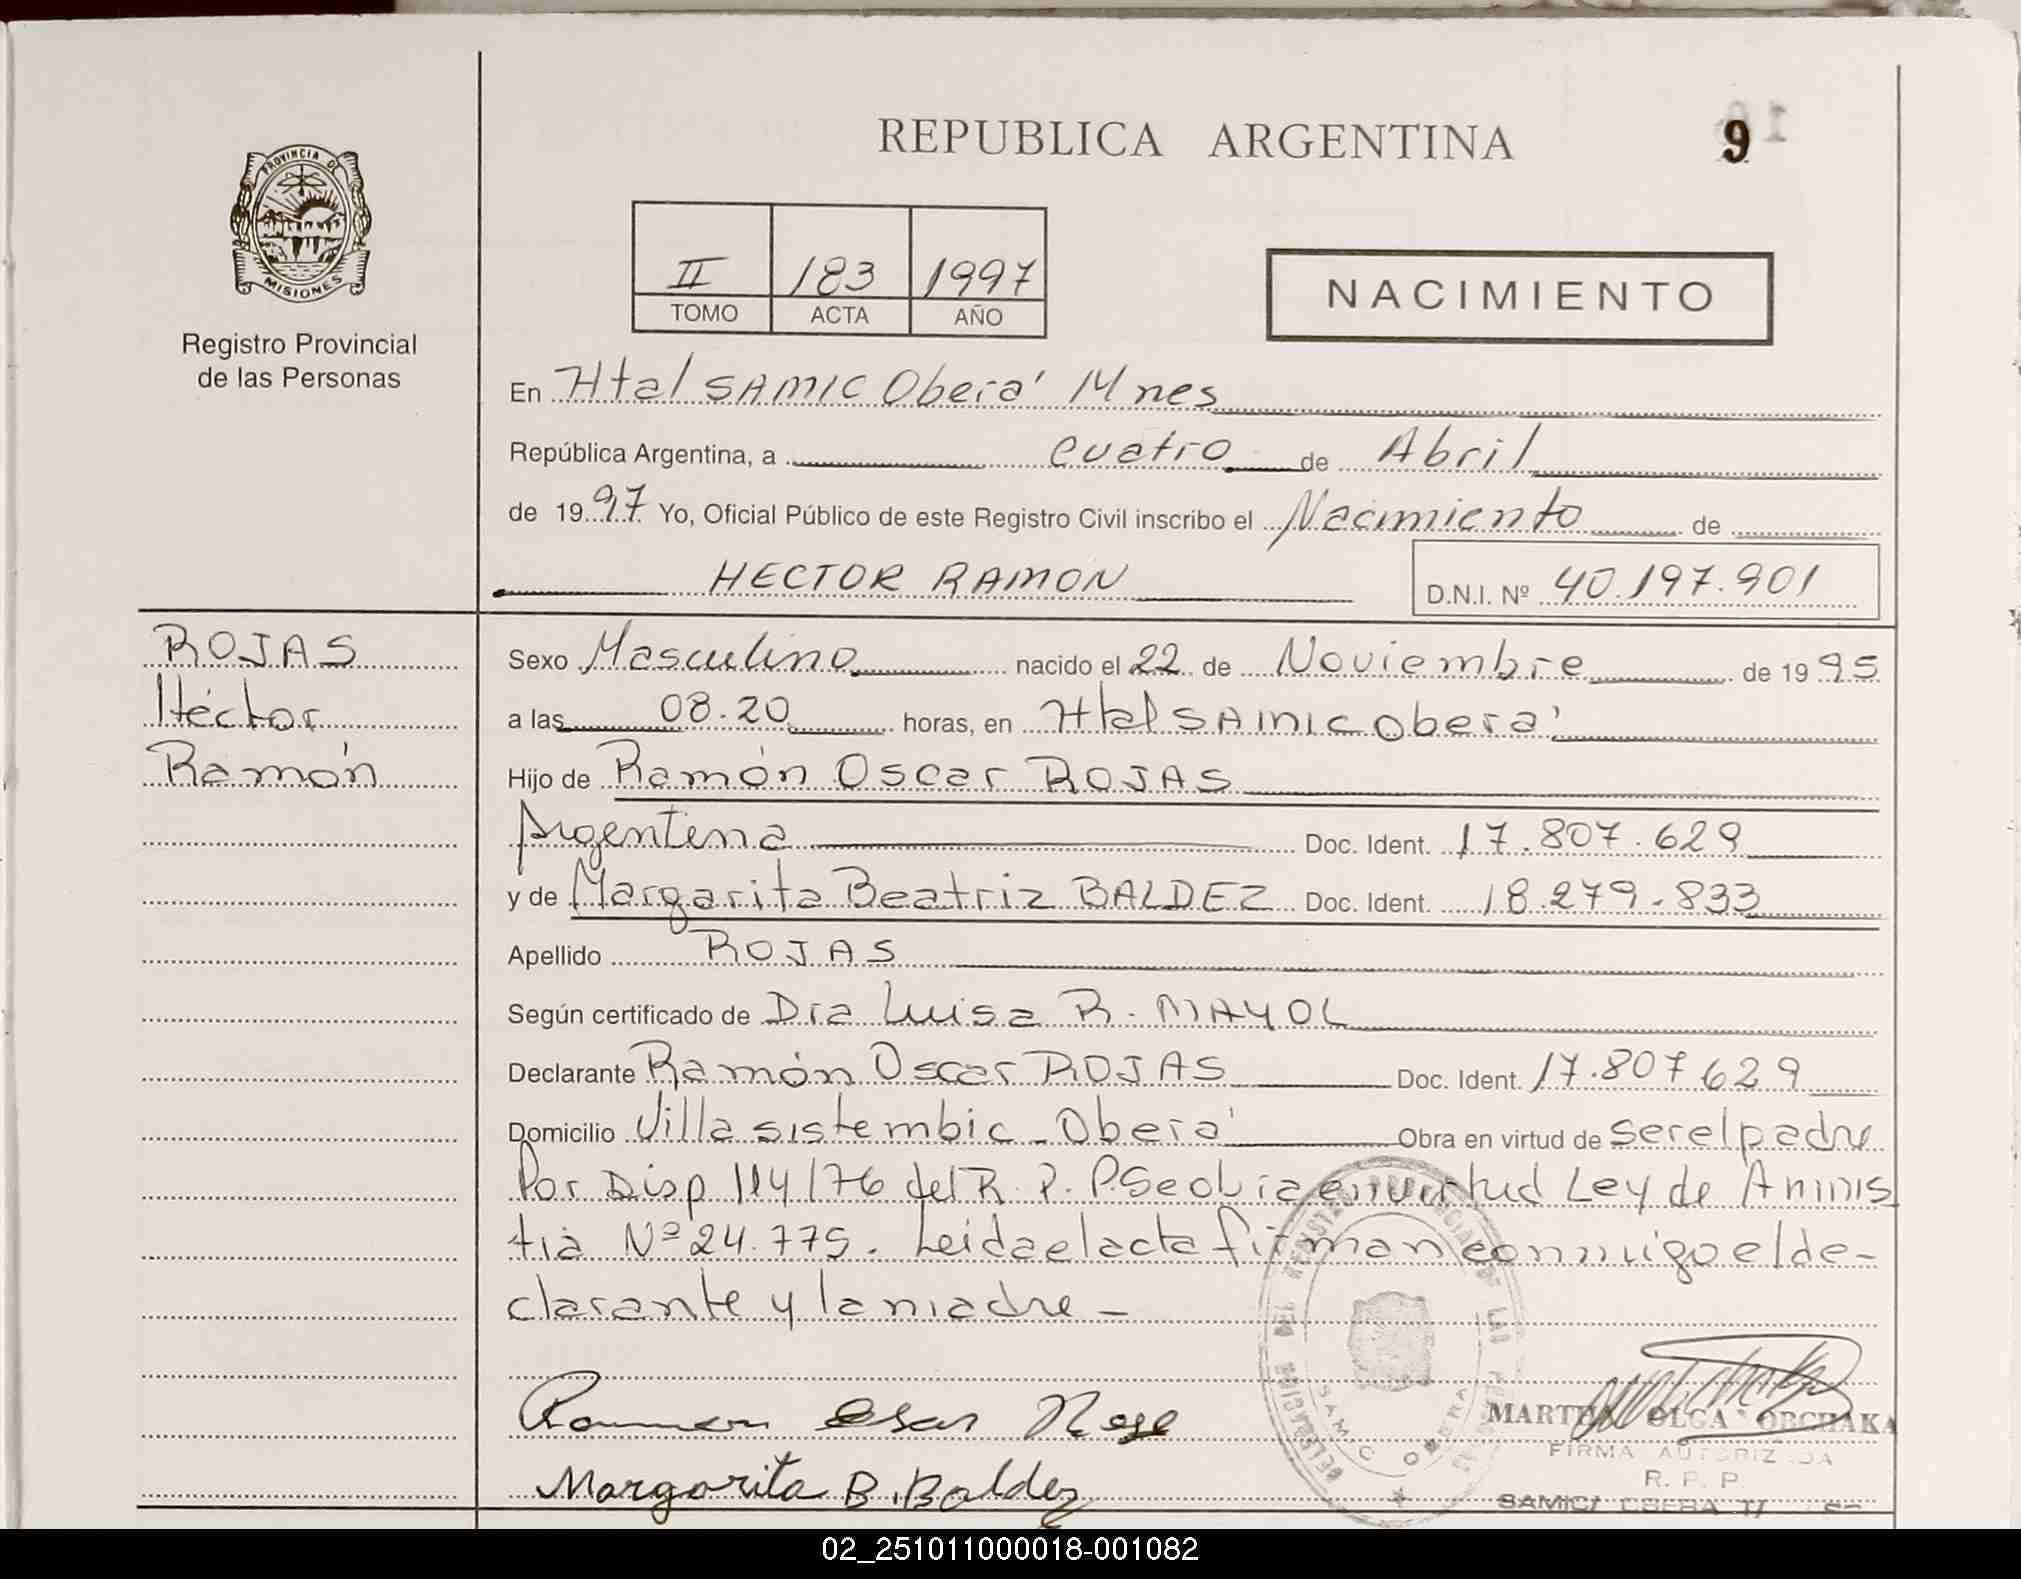 REPUBLICA ARGENTINA
9
PROVINCIA DE
MISIONES
Registro Provincial
de las Personas
II 183 1997
TOMO ACTA AÑO
NACIMIENTO
En Htal SAMIC Oberá Mnes
República Argentina, a cuatro de Abril
de 1997 Yo, Oficial Público de este Registro Civil inscribo el Nacimiento de
HECTOR RAMON
D.N.I. Nº 40.197.901
ROJAS
Héctor
Ramón
Sexo Masculino nacido el 22 de Noviembre de 1995
a las 08.20 horas, en Htal SAMIC Oberá
Hijo de Ramón Oscar ROJAS
Argentina Doc. Ident. 17.807.629
y de Margarita Beatriz BALDEZ Doc. Ident. 18.279.833
Apellido ROJAS
Según certificado de Dra Luisa R. MAYOL
Declarante Ramón Oscar ROJAS Doc. Ident. 17.807629
Domicilio Villa sistembic - Oberá Obra en virtud de ser el padre
Por Disp 114/76 del R. P. P Se obra en virtud Ley de Aminis
tia Nº 24.775. Leida el acta firman conmigo el de-
clarante y la madre -
MARTHA OLGA OBCHAKA
FIRMA AUTORIZADA
R. P. P.
Margarita B. Baldez
02_251011000018-001082